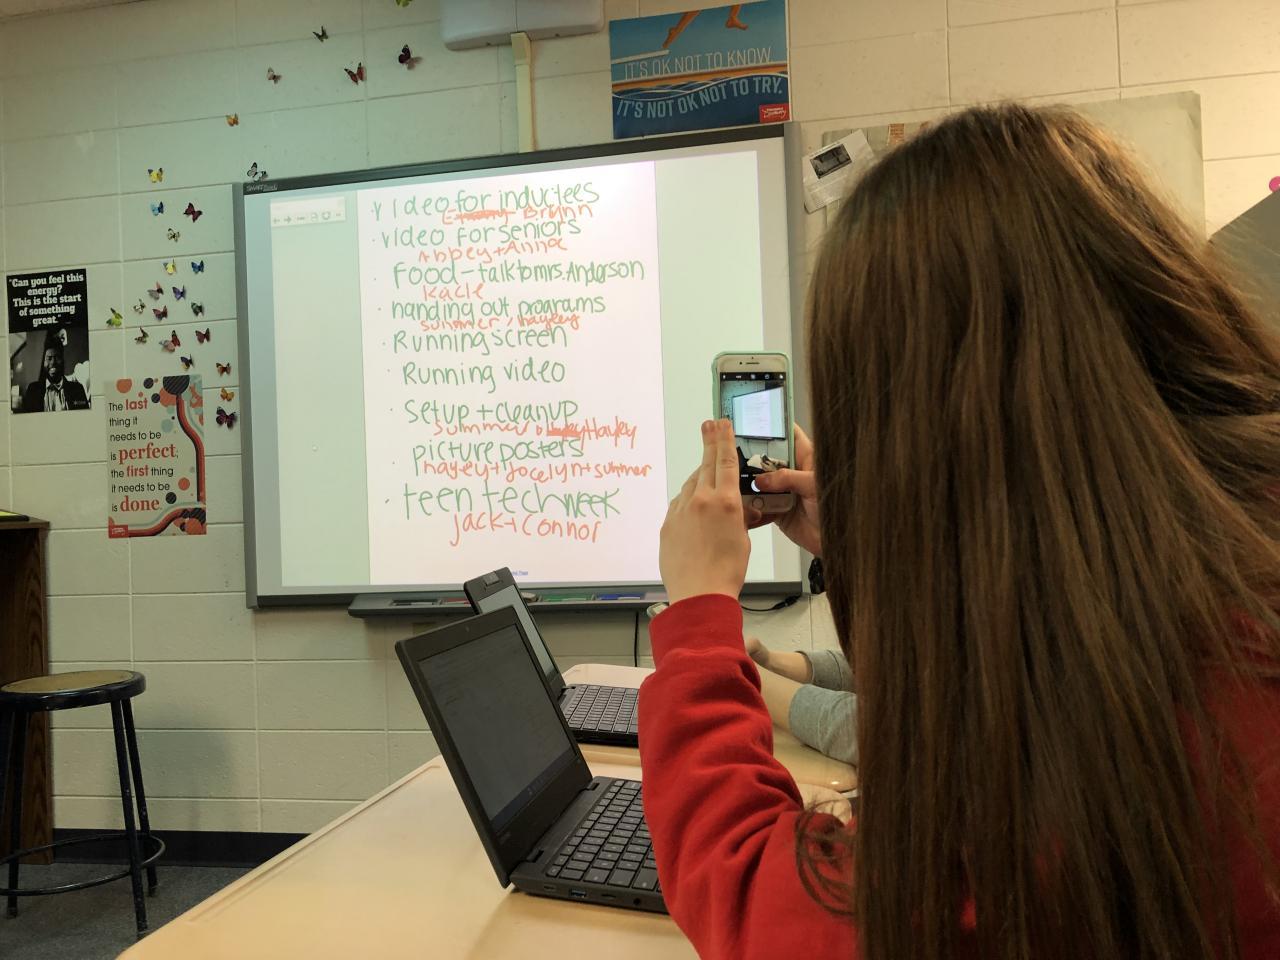 IT'S OK NOT TO KNOW
IT'S NOT OK NOT TO TRY.
SMART Board
video for inductees
Brynn
video for seniors
Abbey + Anna
Food - talk to mrs. Anderson
Kacie
handing out programs
summer, hayley
Running screen
Running video
setup + cleanup
summer + Hayley
picture posters
hayley + Jocelyn + summer
teen tech week
Jack + Connor
"Can you feel this
energy?
This is the start
of something
great."
The last
thing it
needs to be
is perfect;
the first thing
it needs to be
is done.